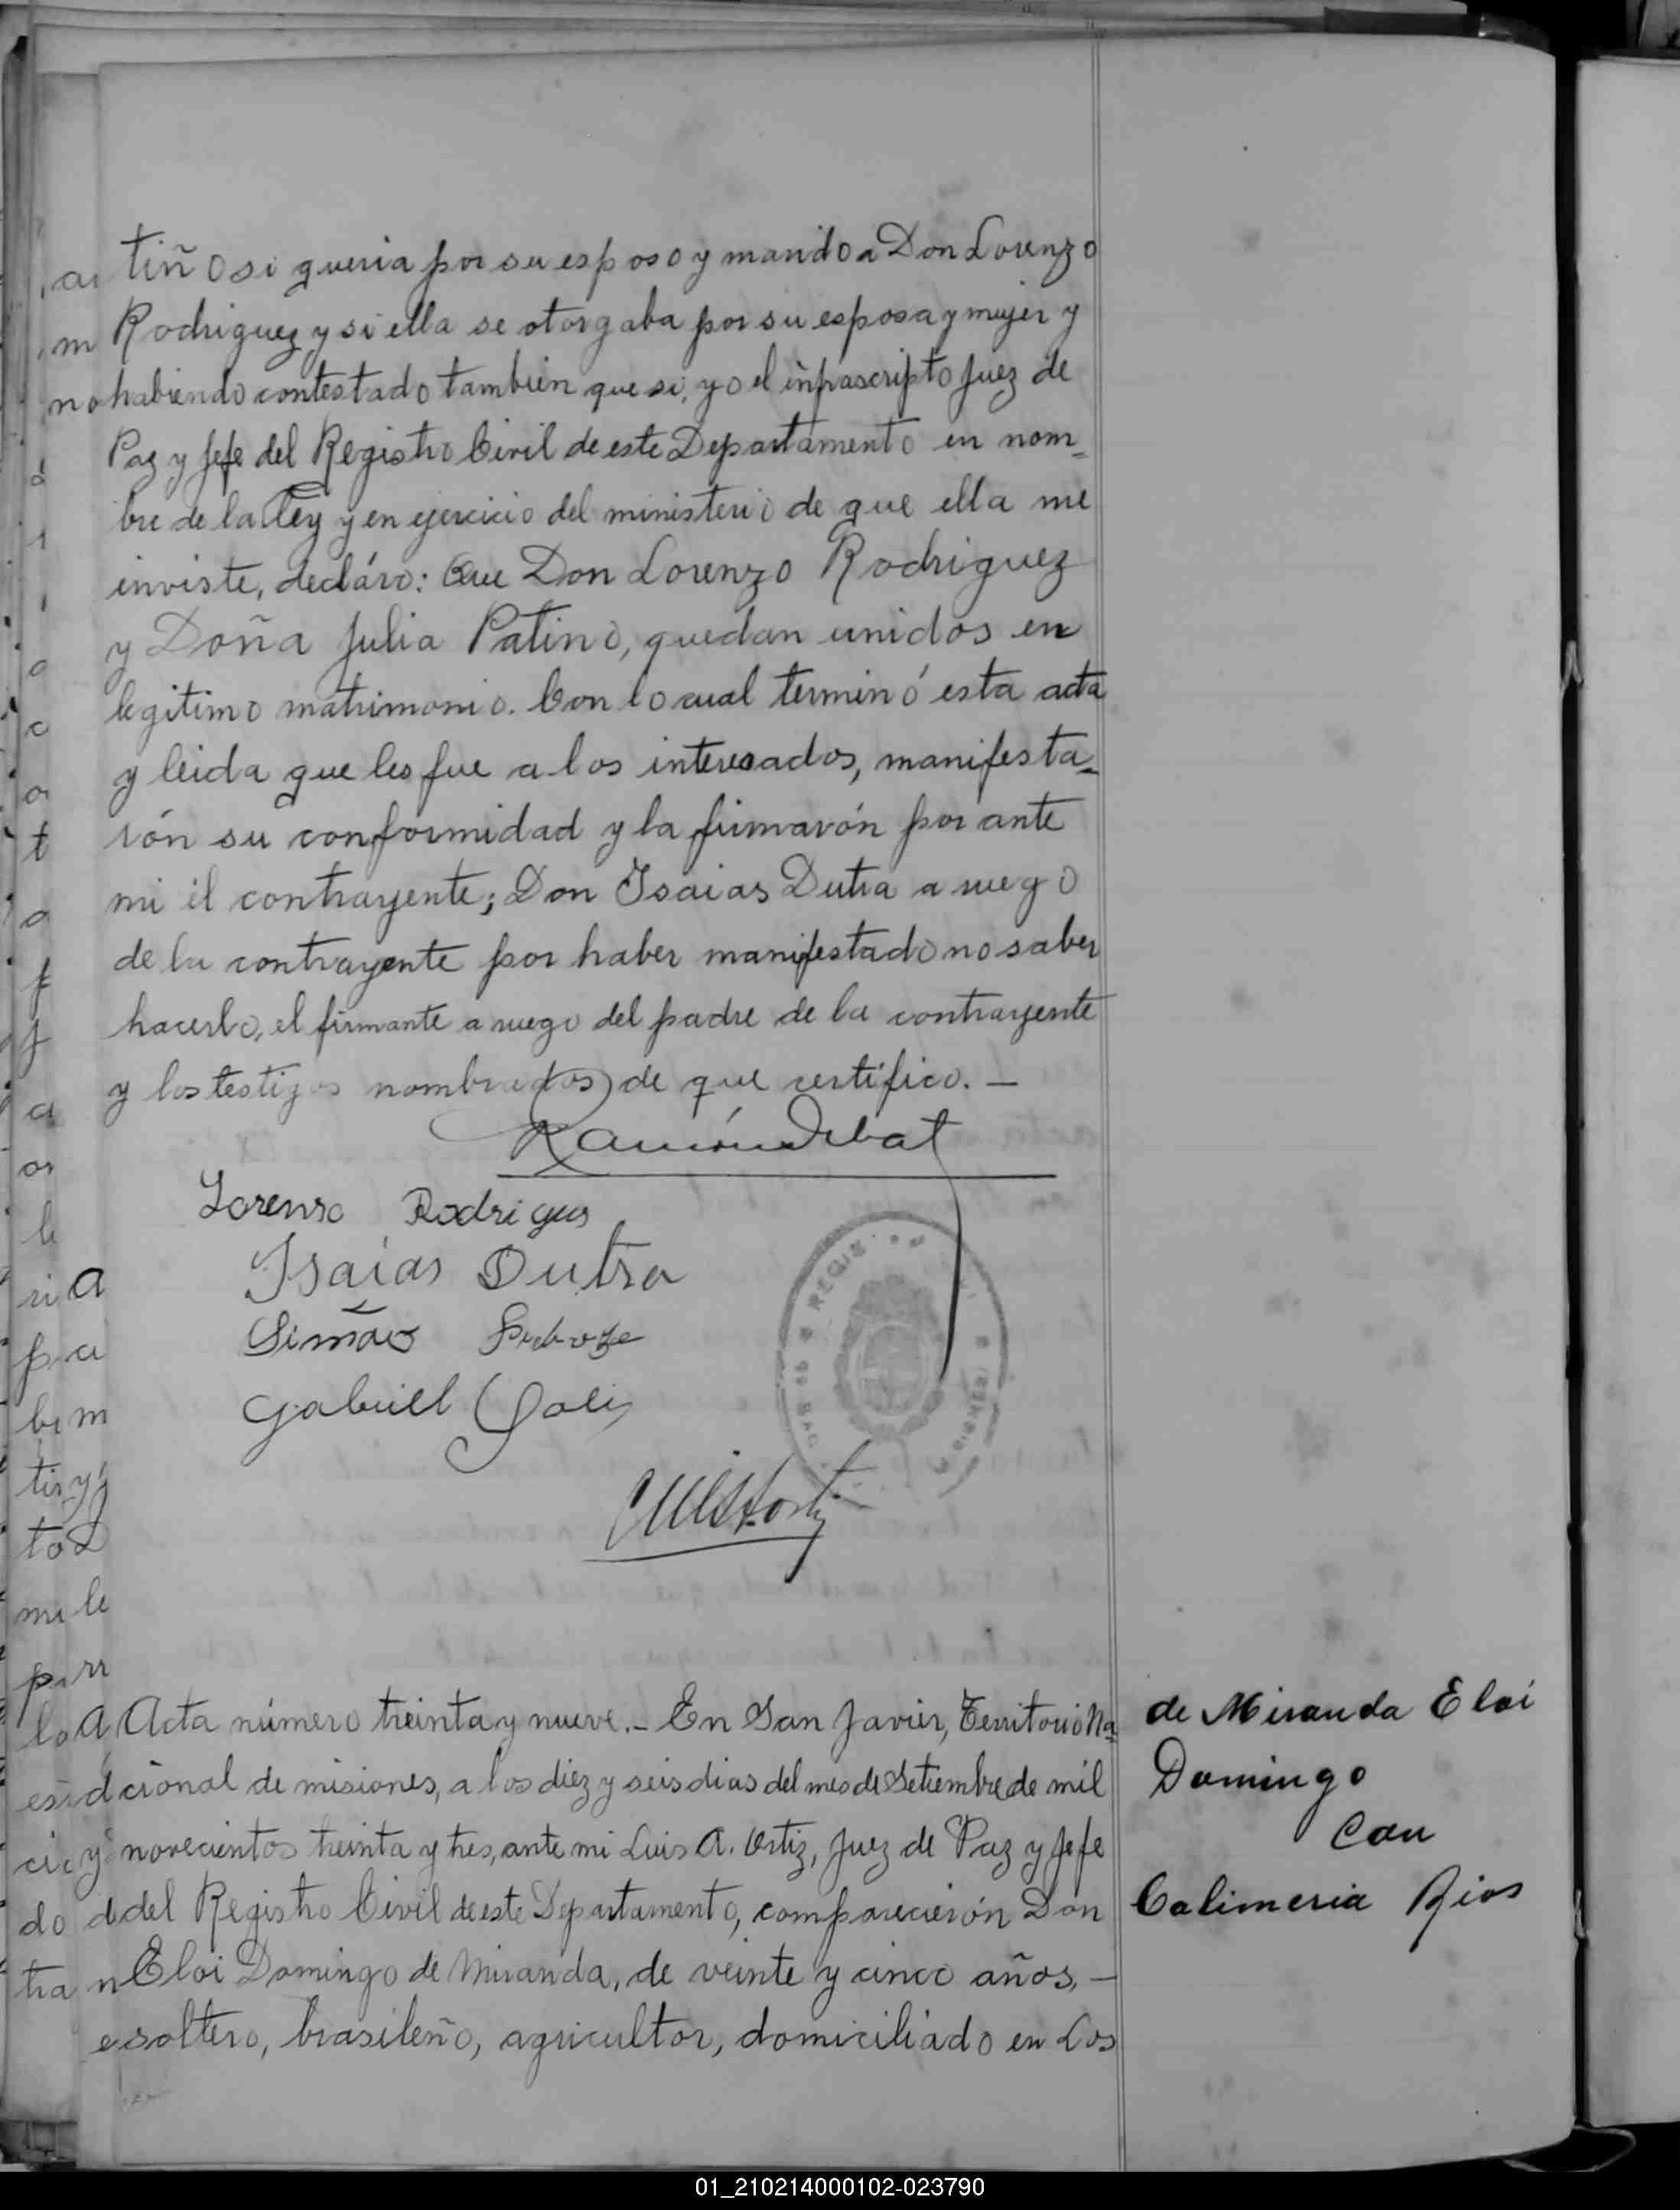 tiño si queria por su esposo y marido a Don Lorenzo
Rodriguez y si ella se otorgaba por su esposa y mujer y
habiendo contestado tambien que si, yo el infrascripto Juez de
Paz y Jefe del Registro Civil de este Departamento en nom=
bre de la Ley y en ejercicio del ministerio de que ella me
inviste, decláro: Que Don Lorenzo Rodriguez
y Doña Julia Patino, quedan unidos en
legitimo matrimonio. Con lo cual terminó esta acta
y leida que les fue a los interesados, manifesta=
rón su conformidad y la firmarón por ante
mi él contrayente; Don Isaias Dutra a ruego
de la contrayente por haber manifestado no saber
hacerlo, el firmante a ruego del padre de la contrayente
y los testigos nombrados de que certifico. —
Ramón
Lorenso Rodrigus
Isaías Dutra
Simão
Gabriell
REGIS
Acta número treinta y nueve.- En San Javier, Territorio Na=
cional de misiones, a los diez y seis dias del mes de Setiembre de mil
novecientos treinta y tres, ante mi Luis A. Ortiz, Juez de Paz y Jefe
del Registro Civil de este Departamento, comparecierón Don
Eloi Domingo de Miranda, de veinte y cinco años, —
soltero, brasileño, agricultor, domiciliado en Los
de Miranda Eloi
Domingo
con
Calimeria Rios
01_210214000102-023790